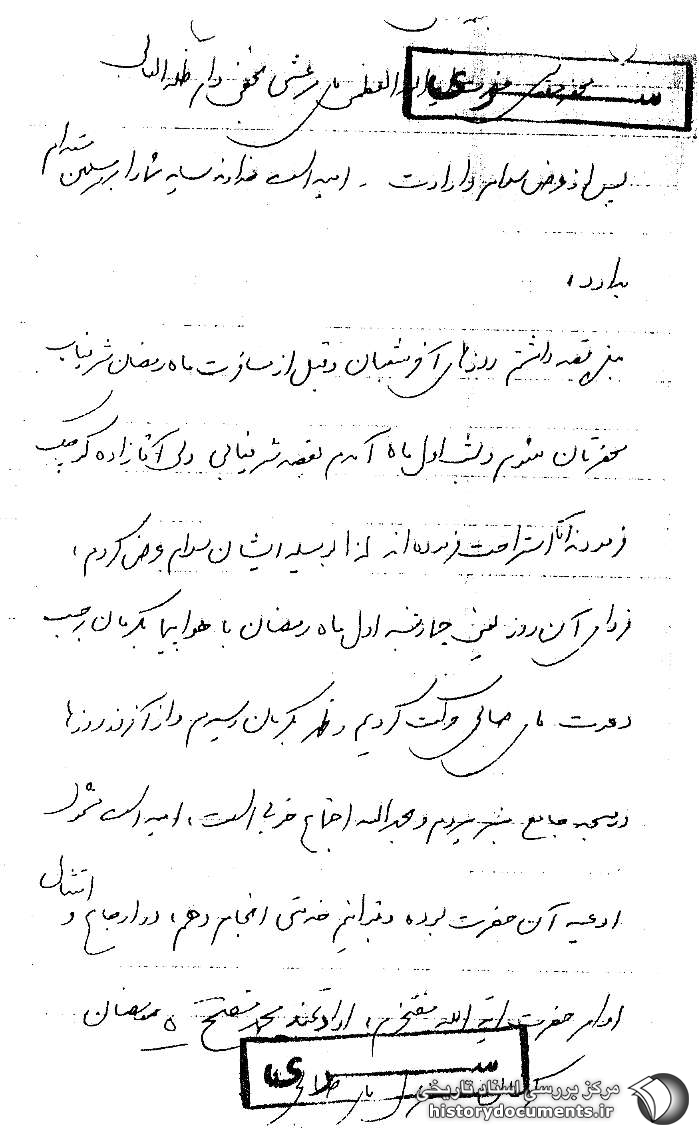 سری
محضر مقدس آیة الله العظمی آقای مرعشی نجفی دام ظله العالی
پس از عرض سلام و ارادت - امید است خداوند سایه شما را بر مسلمین مستدام
بدارد،
بنده قصد داشتم روزهای آخر شعبان و قبل از مسافرت ماه رمضان شرفیاب
محضرتان شوم و شب اول ماه آمدم بقصد شرفیابی ولی آقازاده کوچک
فرمودند آقا استراحت فرموده‌اند لذا بوسیله ایشان سلام عرض کردم،
فردای آن روز یعنی چهارشنبه اول ماه رمضان با هواپیما بکرمان برحسب
دعوت آقای صالحی حرکت کردیم و ظهر بکرمان رسیدیم و از آنروز روزها
در مسجد جامع منبر میروم و بحمدالله اجتماع خوبی است، امید است مشمول
ادعیه آن حضرت بوده و بتوانم خدمتی انجام دهم، در ارجاع و امتثال
اوامر حضرت آیة الله مفتخرم، ارادتمند محمد مفتح ۵ رمضان
کرمان منزل آقای صالحی
سری
مرکز بررسی اسناد تاریخی
historydocuments.ir